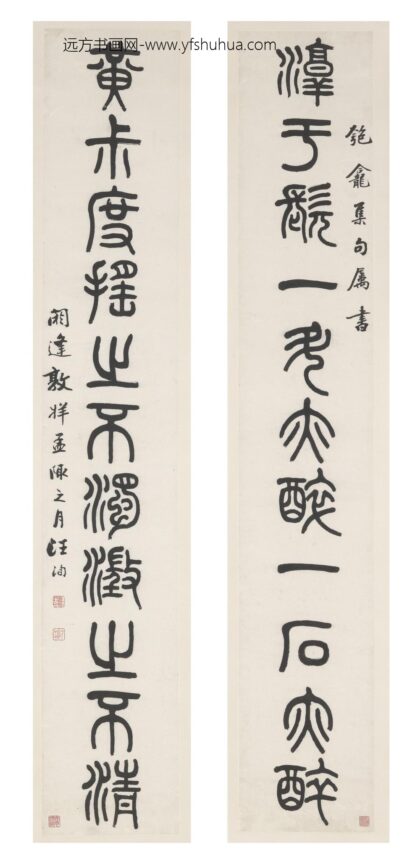 远方书画网-www.yfshuhua.com
匏龕集句屬書
淳于髡一斗亦醉一石亦醉
黃叔度搖之不濁澂之不清
閼逢敦牂孟陬之月汪洵